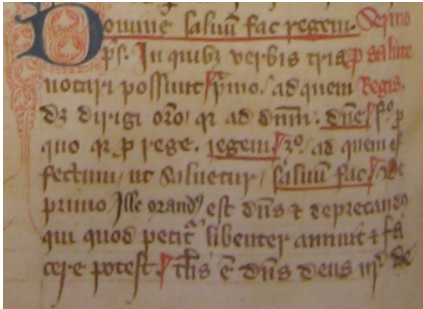 Domine saluū fac regem. Sermo
ps. In quibꝫ verbis tria p̱ salute
notari possunt p̱mo. ad quem Regis.
dꝫ dirigi oro̅. qꝛ ad dn̅m. dn̅e fo̅. p̱
quo qꝛ p̱ rege. regem 3o. ad quem ef
fectum. ut saluetur. saluum fac De
primo Ille orandꝰ est dn̅s ⁊ deprecandꝰ
qui quod petit᷑ libenter annuit ⁊ fa
cere potest. tal̅is e̅ dn̅s deus nr̅. de